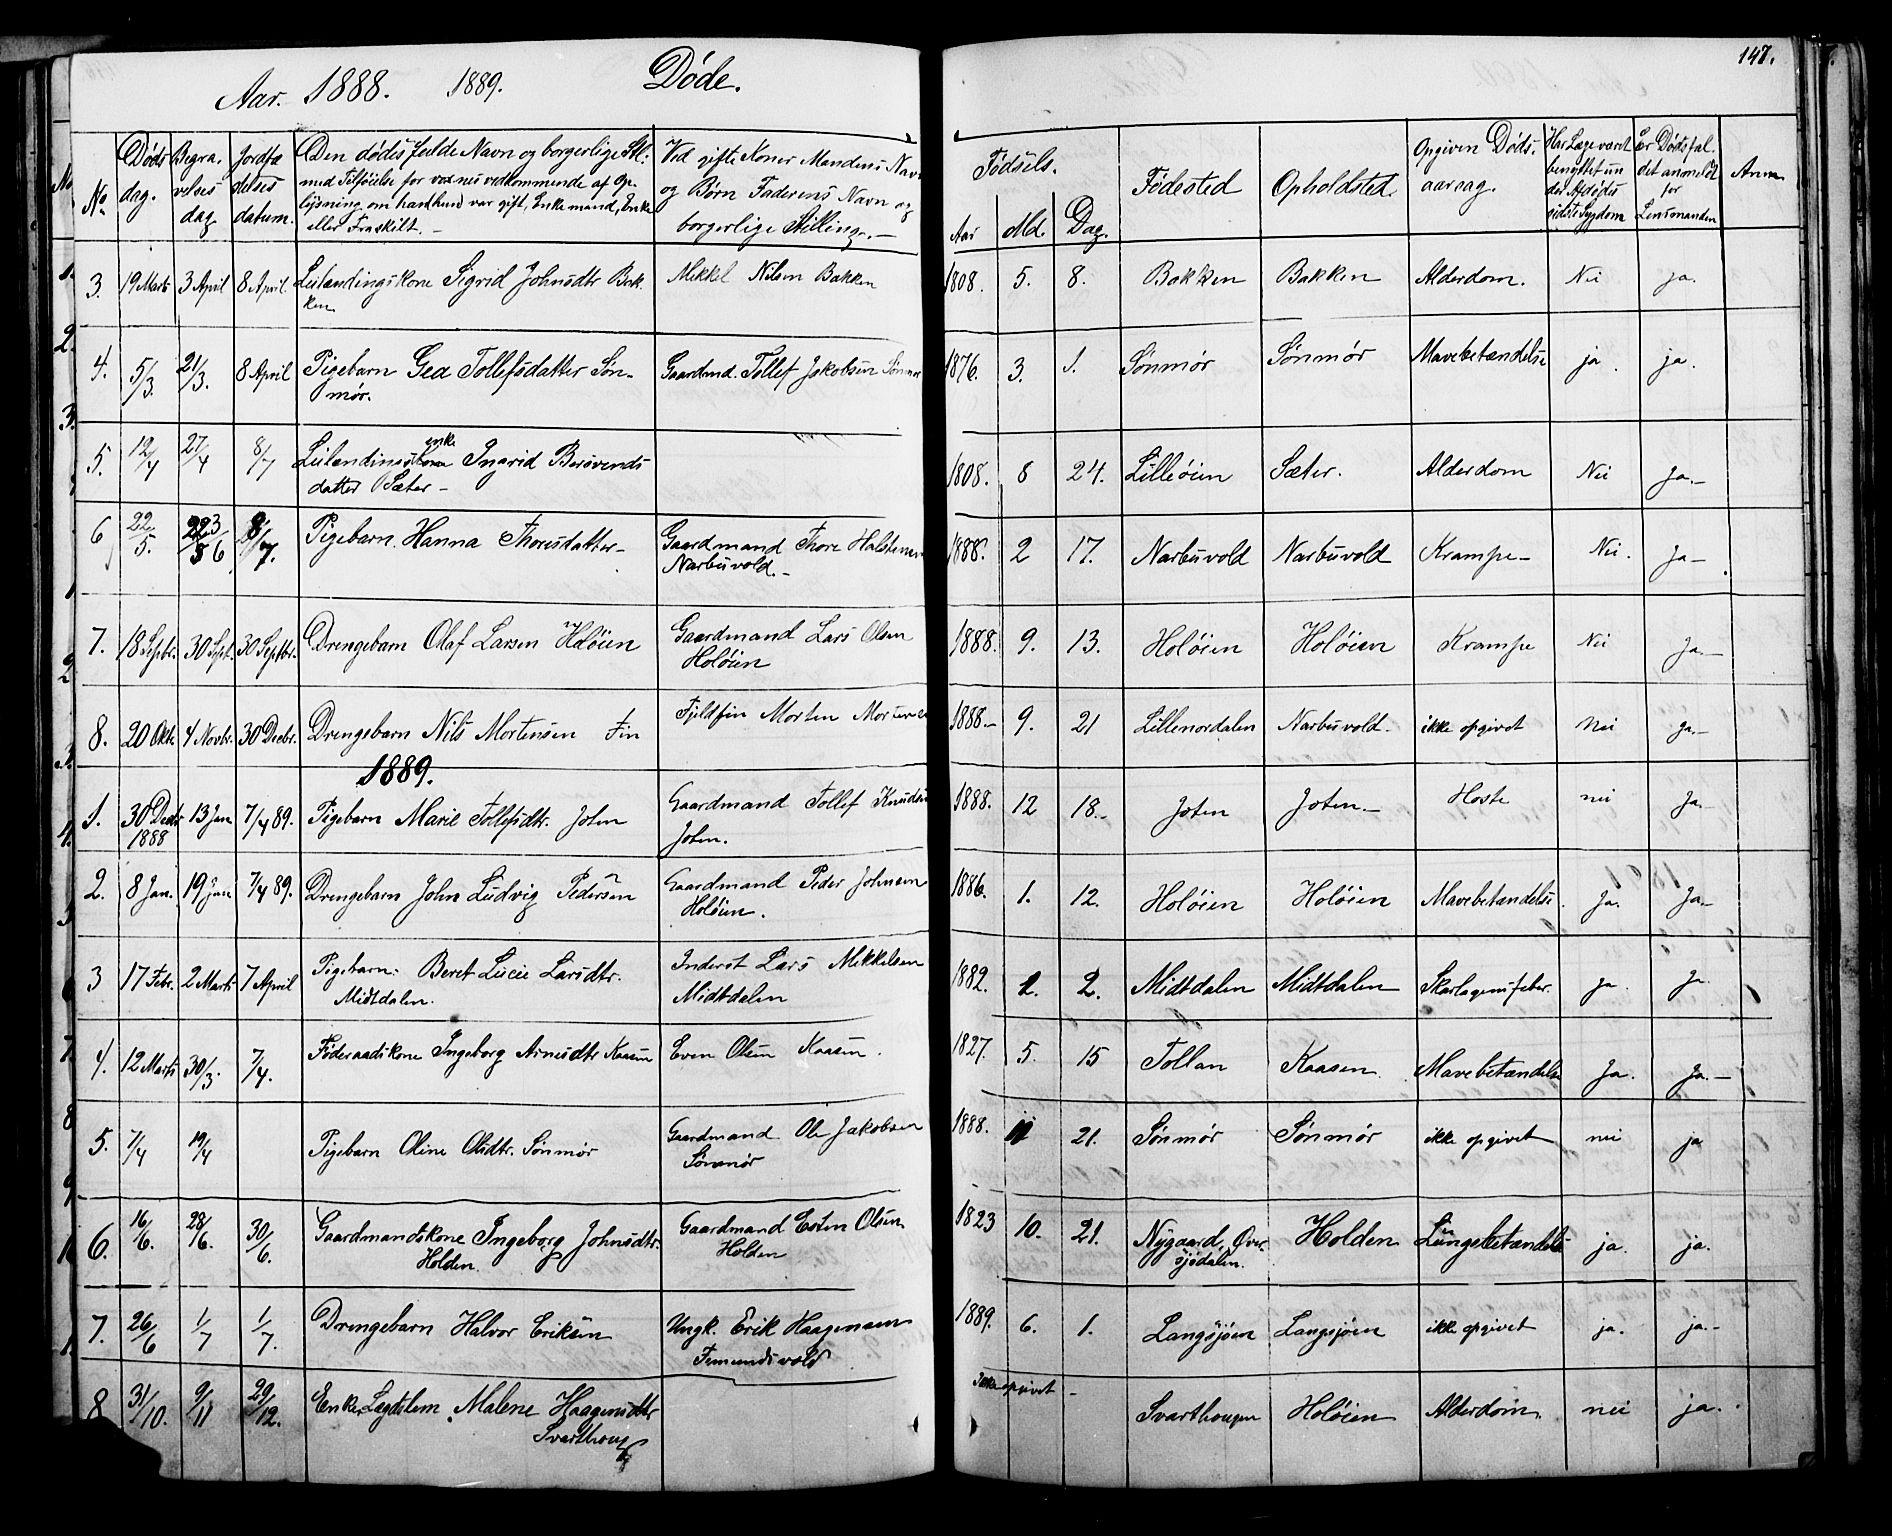 Aar. 1888. 1889. Døde. 147.
No. Døds dag. Begra. velses dag Jordfæ delses datum. Den dødes fulde Navn og borgerlige Stil. med Tilføielse for voxnes vedkommende af Op. lysning om han hun var gift, Enkemand, Enke eller Fraskilt. Ved gifte Koner Mandens Navn og Børn Faderens Navn og borgerlige Stilling. Fødsels. Aar Md. Dag. Fødested Opholdsted. Opgiven Døds. aarsag. Har Læge været benyttet un der Afdødes sidste Sygdom Er Dødsfal. det anmeldt for Lensmanden Anm.
3. 19 Marts 3 April 8 April. Leilændingskone Sigrid Johnsdtr Bak. Mikkel Nilsen Bakken 1808. 5. 8. Bakken Bakken Alderdom. Nei ja.
ken
4. 5/3. 21/3. 8 April Pigebarn Gea Tollefsdatter Søn- Gaardmd. Tollef Jakobsen Sønmør 1876. 3. 1. Sønmør Sønmør Mavebetændelse ja. ja.
mør.
5. 12/4 27/4 8/7 Leilændings enke Ingrid Bersvends 1808. 8 24. Lilleøien Sæter. Alderdom Nei Ja.-
datter Sæter-
6 22/5. 3/6 8/7. Pigebarn. Hanna Thoresdatter- Gaardmand Thore Halstensen 1888. 2 17. Narbuvold Narbuvold Krampe- Nei. Ja-
Narbuvold.-
7. 18 Septbr. 30 Sept. 30 Septbr. Drengebarn Olaf Larsen Holøien Gaardmand Lars Olsen 1888. 9. 13. Holøien Holøien Krampe Nei Ja.-
Holøien
8. 20 Oktr. 4 Novbr. 30 Decbr. Drengebarn Nils Mortensen Fin Fjeldfin Morten Mortensen 1888- 9. 21 Lillenordalen Narbuvold- ikke opgivet Nei Ja.-
1889.
1. 30 Decbr 13 Jan 7/4 89. Pigebarn Marie Tollefsdtr. Joten Gaardmand Tollef Knudsen 1888. 12 18.- Joten Joten.- Hoste nei Ja.-
1888 Joten.
2. 8 Jan. 19 Jan 7/4 89. Drengebarn John Ludvig Pedersen Gaardmand Peder Johnsen 1886. 1. 12. Holøien Holøien Mavebetændelse. Ja. Ja.-
Holøien.
3 17 Febr. 2 Marts 7 April Pigebarn: Beret Lucie Larsdtr. Inderst Lars Mikkelsen 1882. 2. Midtdalen Midtdalen Skarlagensfeber. Ja. Ja.
Midtdalen. Midtdalen
4. 12 Marts 30/3. 7/4. Føderaadskone Ingeborg Arnesdtr Kaasen Even Olsen Kaasen. 1827. 5. 15 Tollan Kaasen. Mavebetændelse Ja. Ja.-
5. 7/4 19/4 Pigebarn Oline Olsdtr. Sønmør Gaardmand Ole Jakobsen 1888. 11 21. Sønmør Sønmør ikke opgivet nei ja
Sønmør
6. 16/6. 28/6. 30/6. Gaardmandskone Ingeborg Johnsdtr. Gaardmand Esten Olsen 1823 10. 21. Nygaard, Øver Holden Lungebetændelse ja. ja.
Holden. Holden sjødalen.
7. 26/6 1/7 1/7. Drengebarn Halvor Eriksen Ungk. Erik Haagensen 1889. 6. 1. Langsjøen Langsjøen ikke opgivet ja. ja.-
Femundsvold
8 31/10. 9/11 29/12. Enke, Lægdslem. Malene Haagensdtr Ikke opgivet - Svarthougen Holøien Alderdom. nei ja.
Svarthoug